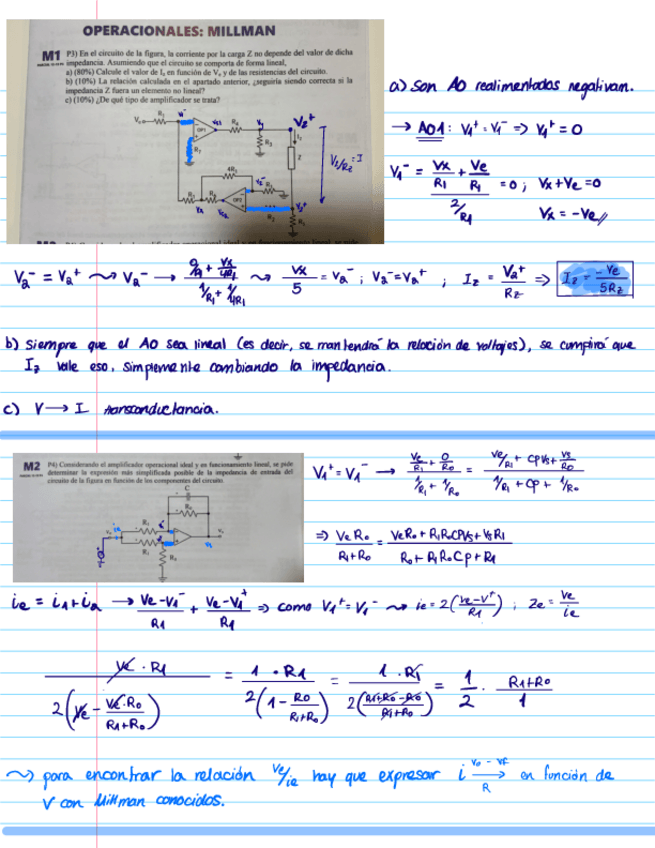 OPERACIONALES: MILLMAN
M1 P3) En el circuito de la figura, la corriente por la carga Z no depende del valor de dicha
impedancia. Asumiendo que el circuito se comporta de forma lineal,
a) (80%) Calcule el valor de I₂ en función de Vₑ y de las resistencias del circuito.
b) (10%) La relación calculada en el apartado anterior, ¿seguiría siendo correcta si la
impedancia Z fuera un elemento no lineal?
c) (10%) ¿De qué tipo de amplificador se trata?
a) Son AO realimentados negativam.
→ AO1: V₁⁺ = V₁⁻ ⇒ V₁⁺ = 0
V₁⁻ = (Vx/R1 + Ve/R1) / (2/R1) = 0 ; Vx + Ve = 0
Vx = -Ve
OP1
OP2
4R₁
Z
V₂⁻ = V₂⁺ ⤳ V₂⁻ → (0/R1 + Vx/4R1) / (1/R1 + 1/4R1) ⤳ Vx/5 = V₂⁻ ; V₂⁻ = V₂⁺ ; Iz = V₂⁺/Rz ⇒ Iz = -Ve/5Rz
b) Siempre que el AO sea lineal (es decir, se mantendrá la relación de voltajes), se cumplirá que
Iz vale eso, simplemente cambiando la impedancia.
c) V → I transconductancia.
M2 P4) Considerando el amplificador operacional ideal y en funcionamiento lineal, se pide
determinar la expresión más simplificada posible de la impedancia de entrada del
circuito de la figura en función de los componentes del circuito.
V₁⁺ = V₁⁻ → (Ve/R1 + 0/Ro) / (1/R1 + 1/Ro) = (Ve/R1 + CpVs + Vs/Ro) / (1/R1 + Cp + 1/Ro)
⇒ VeRo / (R1+Ro) = (VeRo + R1RoCpVs + VsR1) / (Ro + R1RoCp + R1)
C
R₁
R₁
ie = i1 + i2 → (Ve-V1⁻)/R1 + (Ve-V1⁺)/R1 ⇒ como V₁⁺ = V₁⁻ ⤳ ie = 2((Ve-V⁺)/R1) ; Ze = Ve/ie
Ve · R1 / 2(Ve - Ve·Ro/(R1+Ro)) = 1 · R1 / 2(1 - Ro/(R1+Ro)) = 1 · R1 / 2((R1+Ro-Ro)/(R1+Ro)) = 1/2 · (R1+Ro)/1
⤳ para encontrar la relación Ve/ie hay que expresar i → (Vo - Vf)/R en función de
V con Millman conocidos.